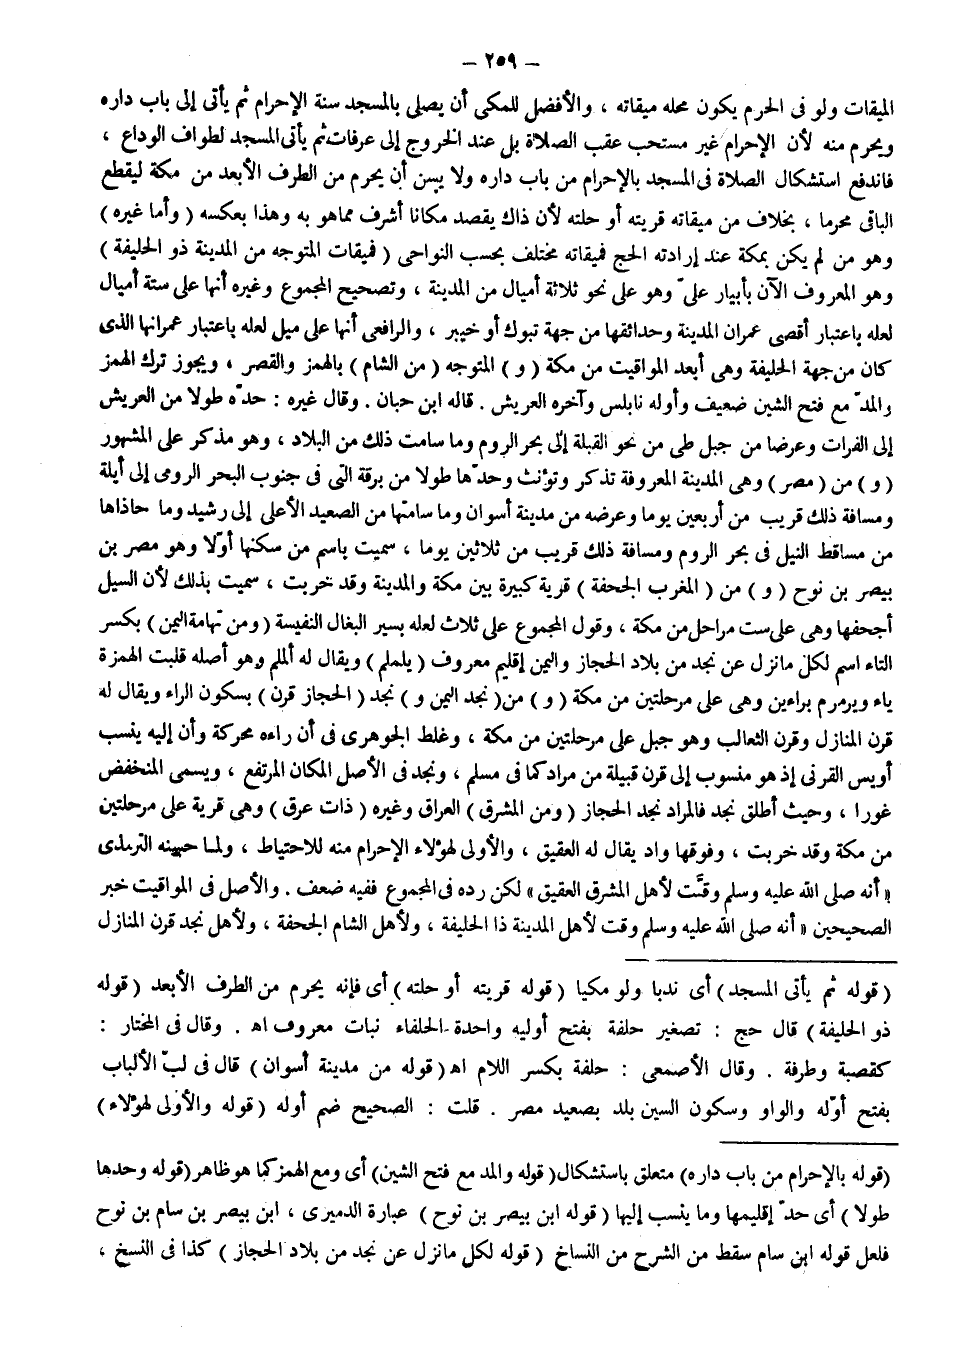 – ٢٥٩ –
الميقات ولو فى الحرم يكون محله ميقاته ، والأفضل للمكى أن يصلى بالمسجد سنة الإحرام ثم يأتى إلى باب داره
ويحرم منه لأن الإحرام غير مستحب عقب الصلاة بل عند الخروج إلى عرفات ثم يأتى المسجد لطواف الوداع ،
فاندفع استشكال الصلاة فى المسجد بالإحرام من باب داره ولا يسن أن يحرم من الطرف الأبعد من مكة ليقطع
الباقى محرما ، بخلاف من ميقاته قريته أو حلته لأن ذاك يقصد مكانا أشرف مما هو به وهذا بعكسه ( وأما غيره )
وهو من لم يكن بمكة عند إرادته الحج فميقاته مختلف بحسب النواحى ( فميقات المتوجه من المدينة ذو الحليفة )
وهو المعروف الآن بأبيار علىّ وهو على نحو ثلاثة أميال من المدينة ، وتصحيح المجموع وغيره أنها على ستة أميال
لعله باعتبار أقصى عمران المدينة وحدائقها من جهة تبوك أو خيبر ، والرافعى أنها على ميل لعله باعتبار عمرانها الذى
كان من جهة الحليفة وهى أبعد المواقيت من مكة ( و ) المتوجه ( من الشام ) بالهمز والقصر ، ويجوز ترك الهمز
والمدّ مع فتح الشين ضعيف وأوله نابلس وآخره العريش . قاله ابن حبان . وقال غيره : حدّه طولا من العريش
إلى الفرات وعرضا من جبل طى من نحو القبلة إلى بحر الروم وما سامت ذلك من البلاد ، وهو مذكر على المشهور
( و ) من ( مصر ) وهى المدينة المعروفة تذكر وتؤنث وحدّها طولا من برقة التى فى جنوب البحر الرومى إلى أيلة
ومسافة ذلك قريب من أربعين يوما وعرضه من مدينة أسوان وما سامتها من الصعيد الأعلى إلى رشيد وما حاذاها
من مساقط النيل فى بحر الروم ومسافة ذلك قريب من ثلاثين يوما ، سميت باسم من سكنها أوّلا وهو مصر بن
بيصر بن نوح ( و ) من ( المغرب الجحفة ) قرية كبيرة بين مكة والمدينة وقد خربت ، سميت بذلك لأن السيل
أجحفها وهى على ست مراحل من مكة ، وقول المجموع على ثلاث لعله بسير البغال النفيسة ( ومن تهامة اليمن ) بكسر
التاء اسم لكل ما نزل عن نجد من بلاد الحجاز واليمن إقليم معروف ( يلملم ) ويقال له ألملم وهو أصله قلبت الهمزة
ياء ويرمرم براءين وهى على مرحلتين من مكة ( و ) من ( نجد اليمن و ) نجد ( الحجاز قرن ) بسكون الراء ويقال له
قرن المنازل وقرن الثعالب وهو جبل على مرحلتين من مكة ، وغلط الجوهرى فى أن راءه محركة وأن إليه ينسب
أويس القرنى إذ هو منسوب إلى قرن قبيلة من مراد كما فى مسلم ، ونجد فى الأصل المكان المرتفع ، ويسمى المنخفض
غورا ، وحيث أطلق نجد فالمراد نجد الحجاز ( ومن المشرق ) العراق وغيره ( ذات عرق ) وهى قرية على مرحلتين
من مكة وقد خربت ، وفوقها واد يقال له العقيق ، والأولى لهؤلاء الإحرام منه للاحتياط ، ولما حسنه الترمذى
« أنه صلى الله عليه وسلم وقّت لأهل المشرق العقيق » لكن رده فى المجموع ففيه ضعف . والأصل فى المواقيت خبر
الصحيحين « أنه صلى الله عليه وسلم وقت لأهل المدينة ذا الحليفة ، ولأهل الشام الجحفة ، ولأهل نجد قرن المنازل
( قوله ثم يأتى المسجد ) أى ندبا ولو مكيا ( قوله قريته أو حلته ) أى فإنه يحرم من الطرف الأبعد ( قوله
ذو الحليفة ) قال حج : تصغير حلفة بفتح أوليه واحدة الحلفاء نبات معروف اه . وقال فى المختار :
كقصبة وطرفة . وقال الأصمعى : حلفة بكسر اللام اه ( قوله من مدينة أسوان ) قال فى لبّ الألباب
بفتح أوّله والواو وسكون السين بلد بصعيد مصر . قلت : الصحيح ضم أوله ( قوله والأولى لهؤلاء )
( قوله بالإحرام من باب داره ) متعلق باستشكال ( قوله والمد مع فتح الشين ) أى ومع الهمز كما هو ظاهر ( قوله وحدها
طولا ) أى حدّ إقليمها وما ينسب إليها ( قوله ابن بيصر بن نوح ) عبارة الدميرى ، ابن بيصر بن سام بن نوح
فلعل قوله ابن سام سقط من الشرح من النساخ ( قوله لكل ما نزل عن نجد من بلاد الحجاز ) كذا فى النسخ ،